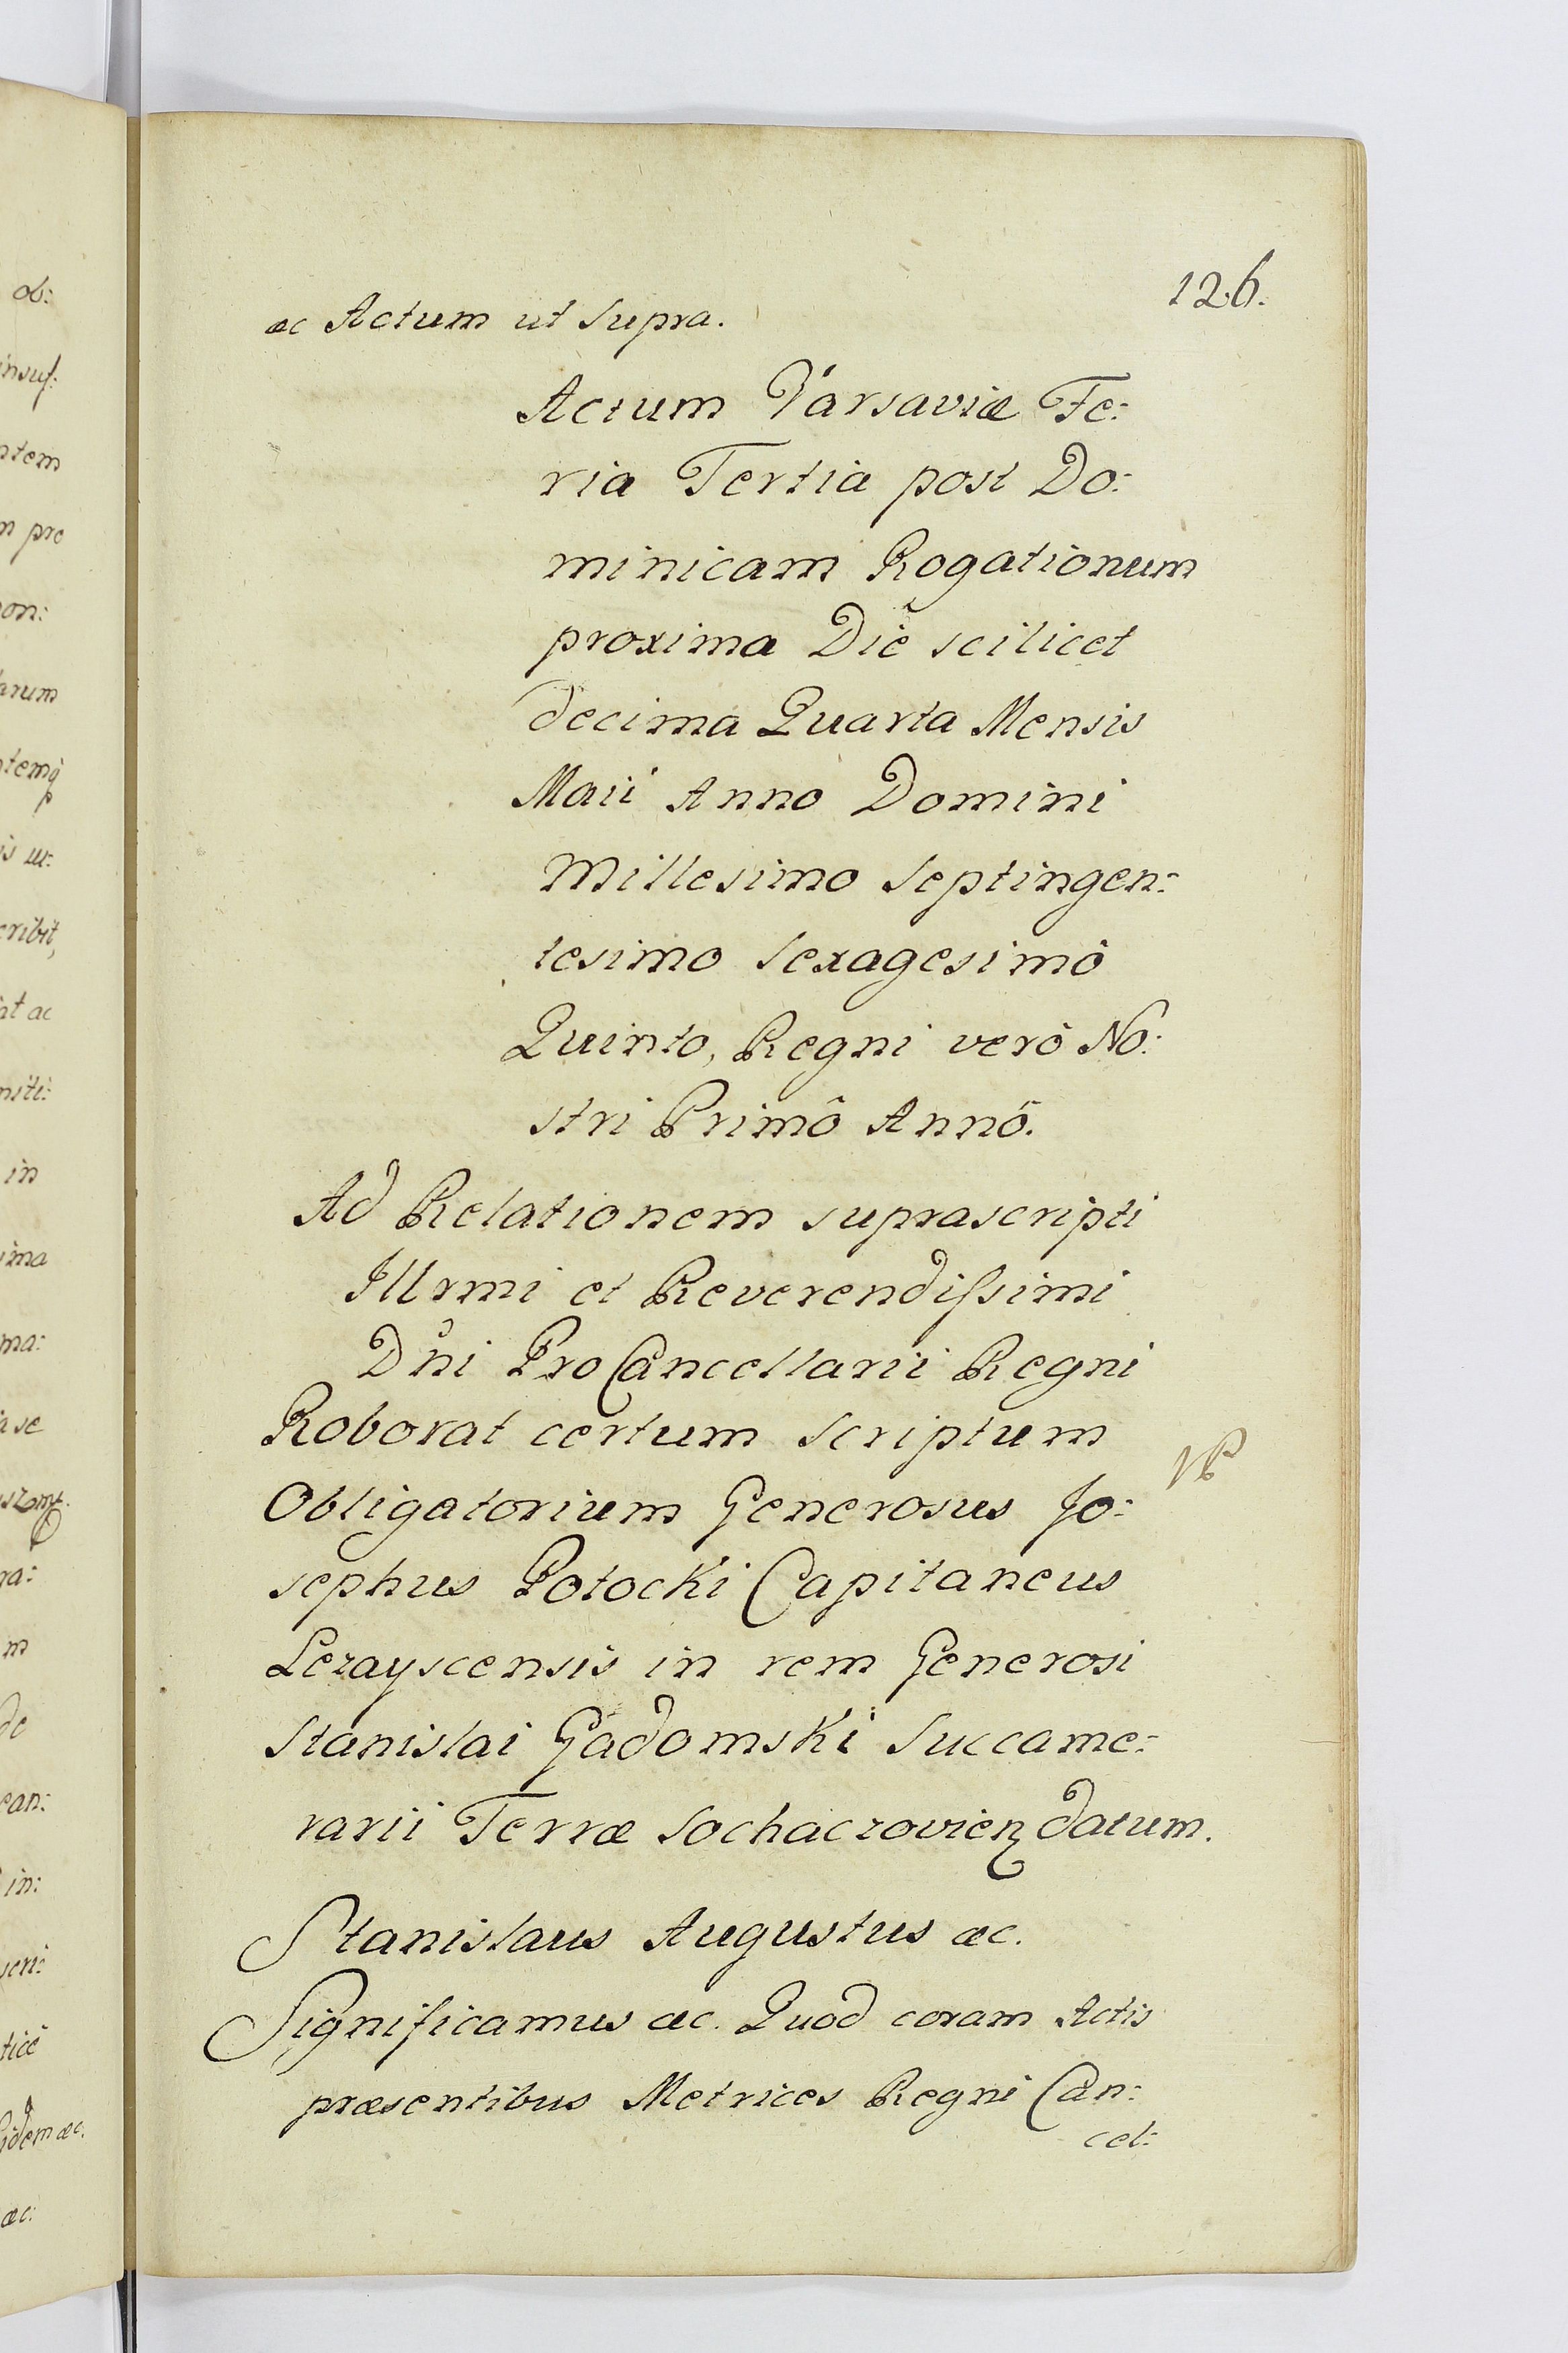 126.
æc Actum ut supra.
Actum Varsaviæ Fe:
ria Tertia post Do:
minicam Rogationum
proxima Die scilicet
decima Quarta Mensis
Maii Anno Domini
Millesimo Septingen:
tesimo Sexagesimô
Quinto, Regni verô No:
stri Primô Annô.
Ad Relationem suprascripti
Illrmi et Reverendissimi
Dñi ProCancellarii Regni
Roborat certum Scriptum
Obligatorium Generosus Jo:
sephus Potocki Capitaneus
Lezayscensis in rem Generosi
Stanislai Gadomski Succame:
rarii Terræ Sochaczovien datum.
Stanislaus Augustus æc.
Significamus æc. Quod coram Actis
præsentibus Metrices Regni Can:
cel:
ntem
m pre
non:
arum
ntemq
cribit,
at ac
in
ima
ma:
se
ra:
m
de
can:
in:
ticè
idem æc.
æc: